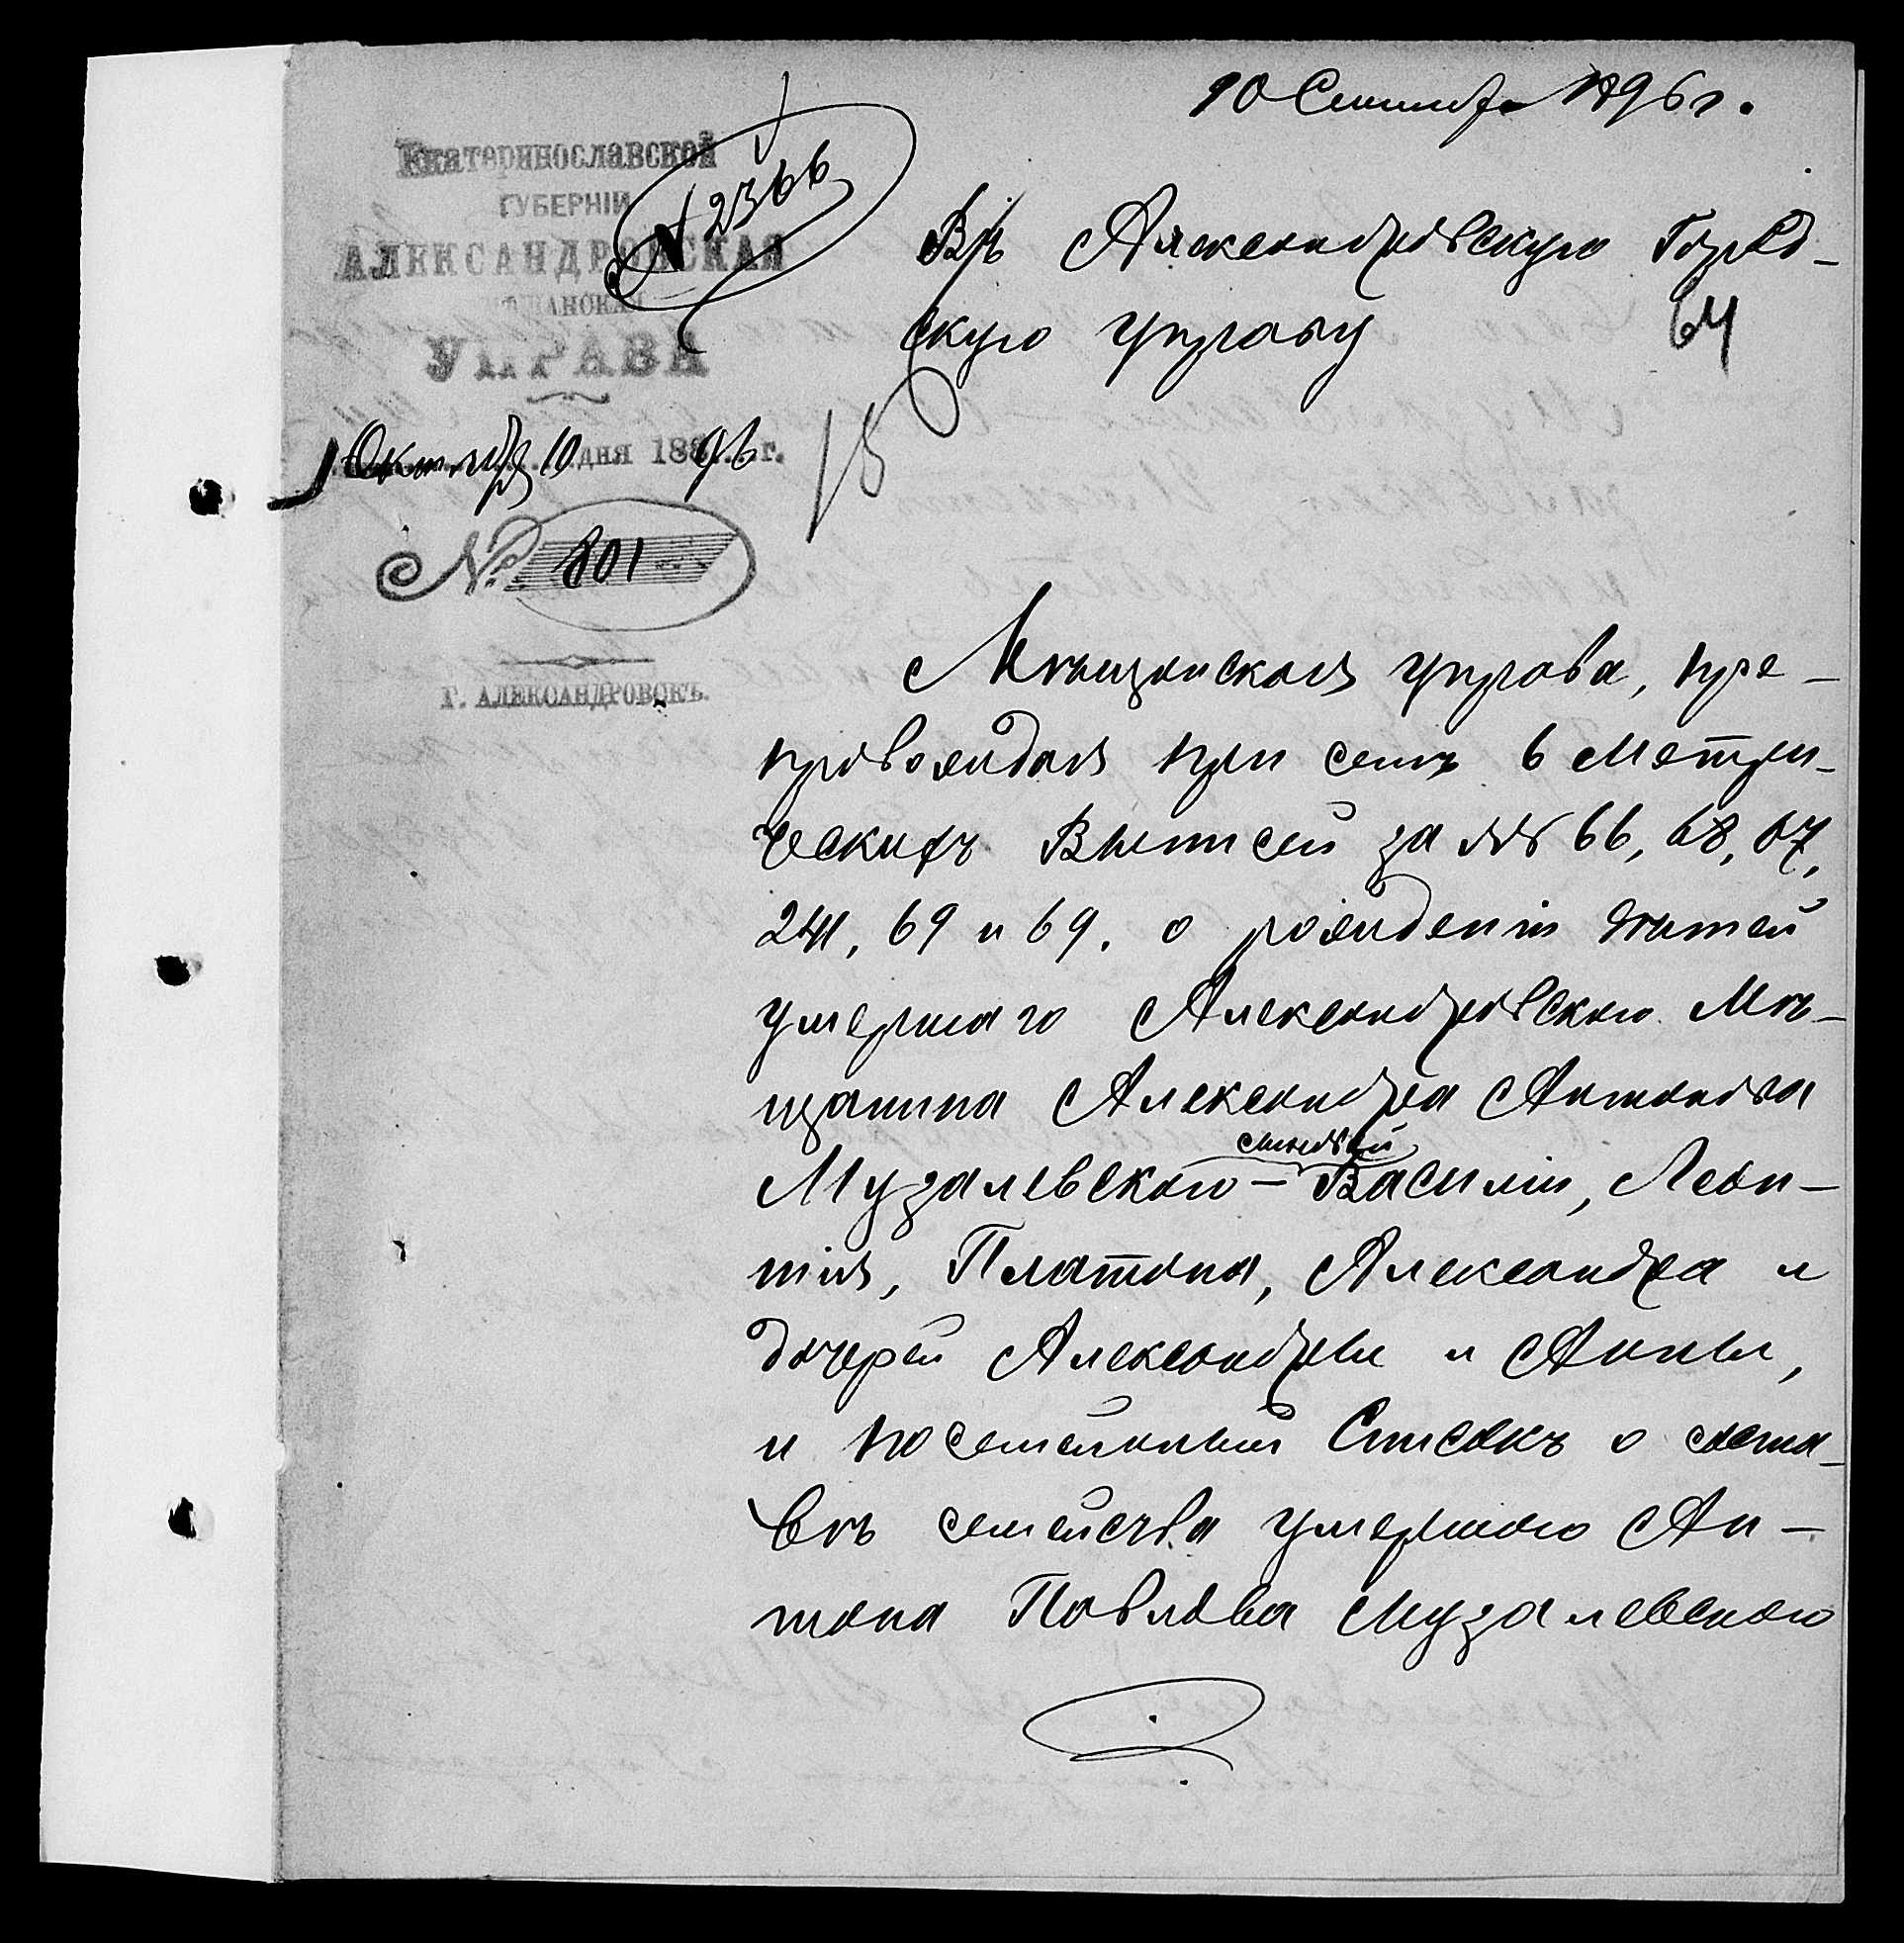 10 Сентября 1896 г.
Екатеринославской
ГУБЕРНІИ
АЛЕКСАНДРОВСКАЯ
МѢЩАНСКАЯ
УПРАВА
№ 2366
Октября 10 дня 1896 г.
№ 801
Г. АЛЕКСАНДРОВСКЪ.
Въ Александровскую Город-
скую Управу
64
Мѣщанская управа, пре-
провождая при семъ 6 Метри-
ческихъ Выписей за №№ 66, 68, 67,
241, 69 и 69. о рожденіи дѣтей
умершаго Александровскаго Мѣ-
щанина Александра Антонова
сыновей
Музалевскаго – Василія, Леон-
тія, Платона, Александра и
дочерей Александры и Анны,
и посемейный Списокъ о соста-
вѣ семейства умершаго Ан-
тона Павлова Музалевскаго